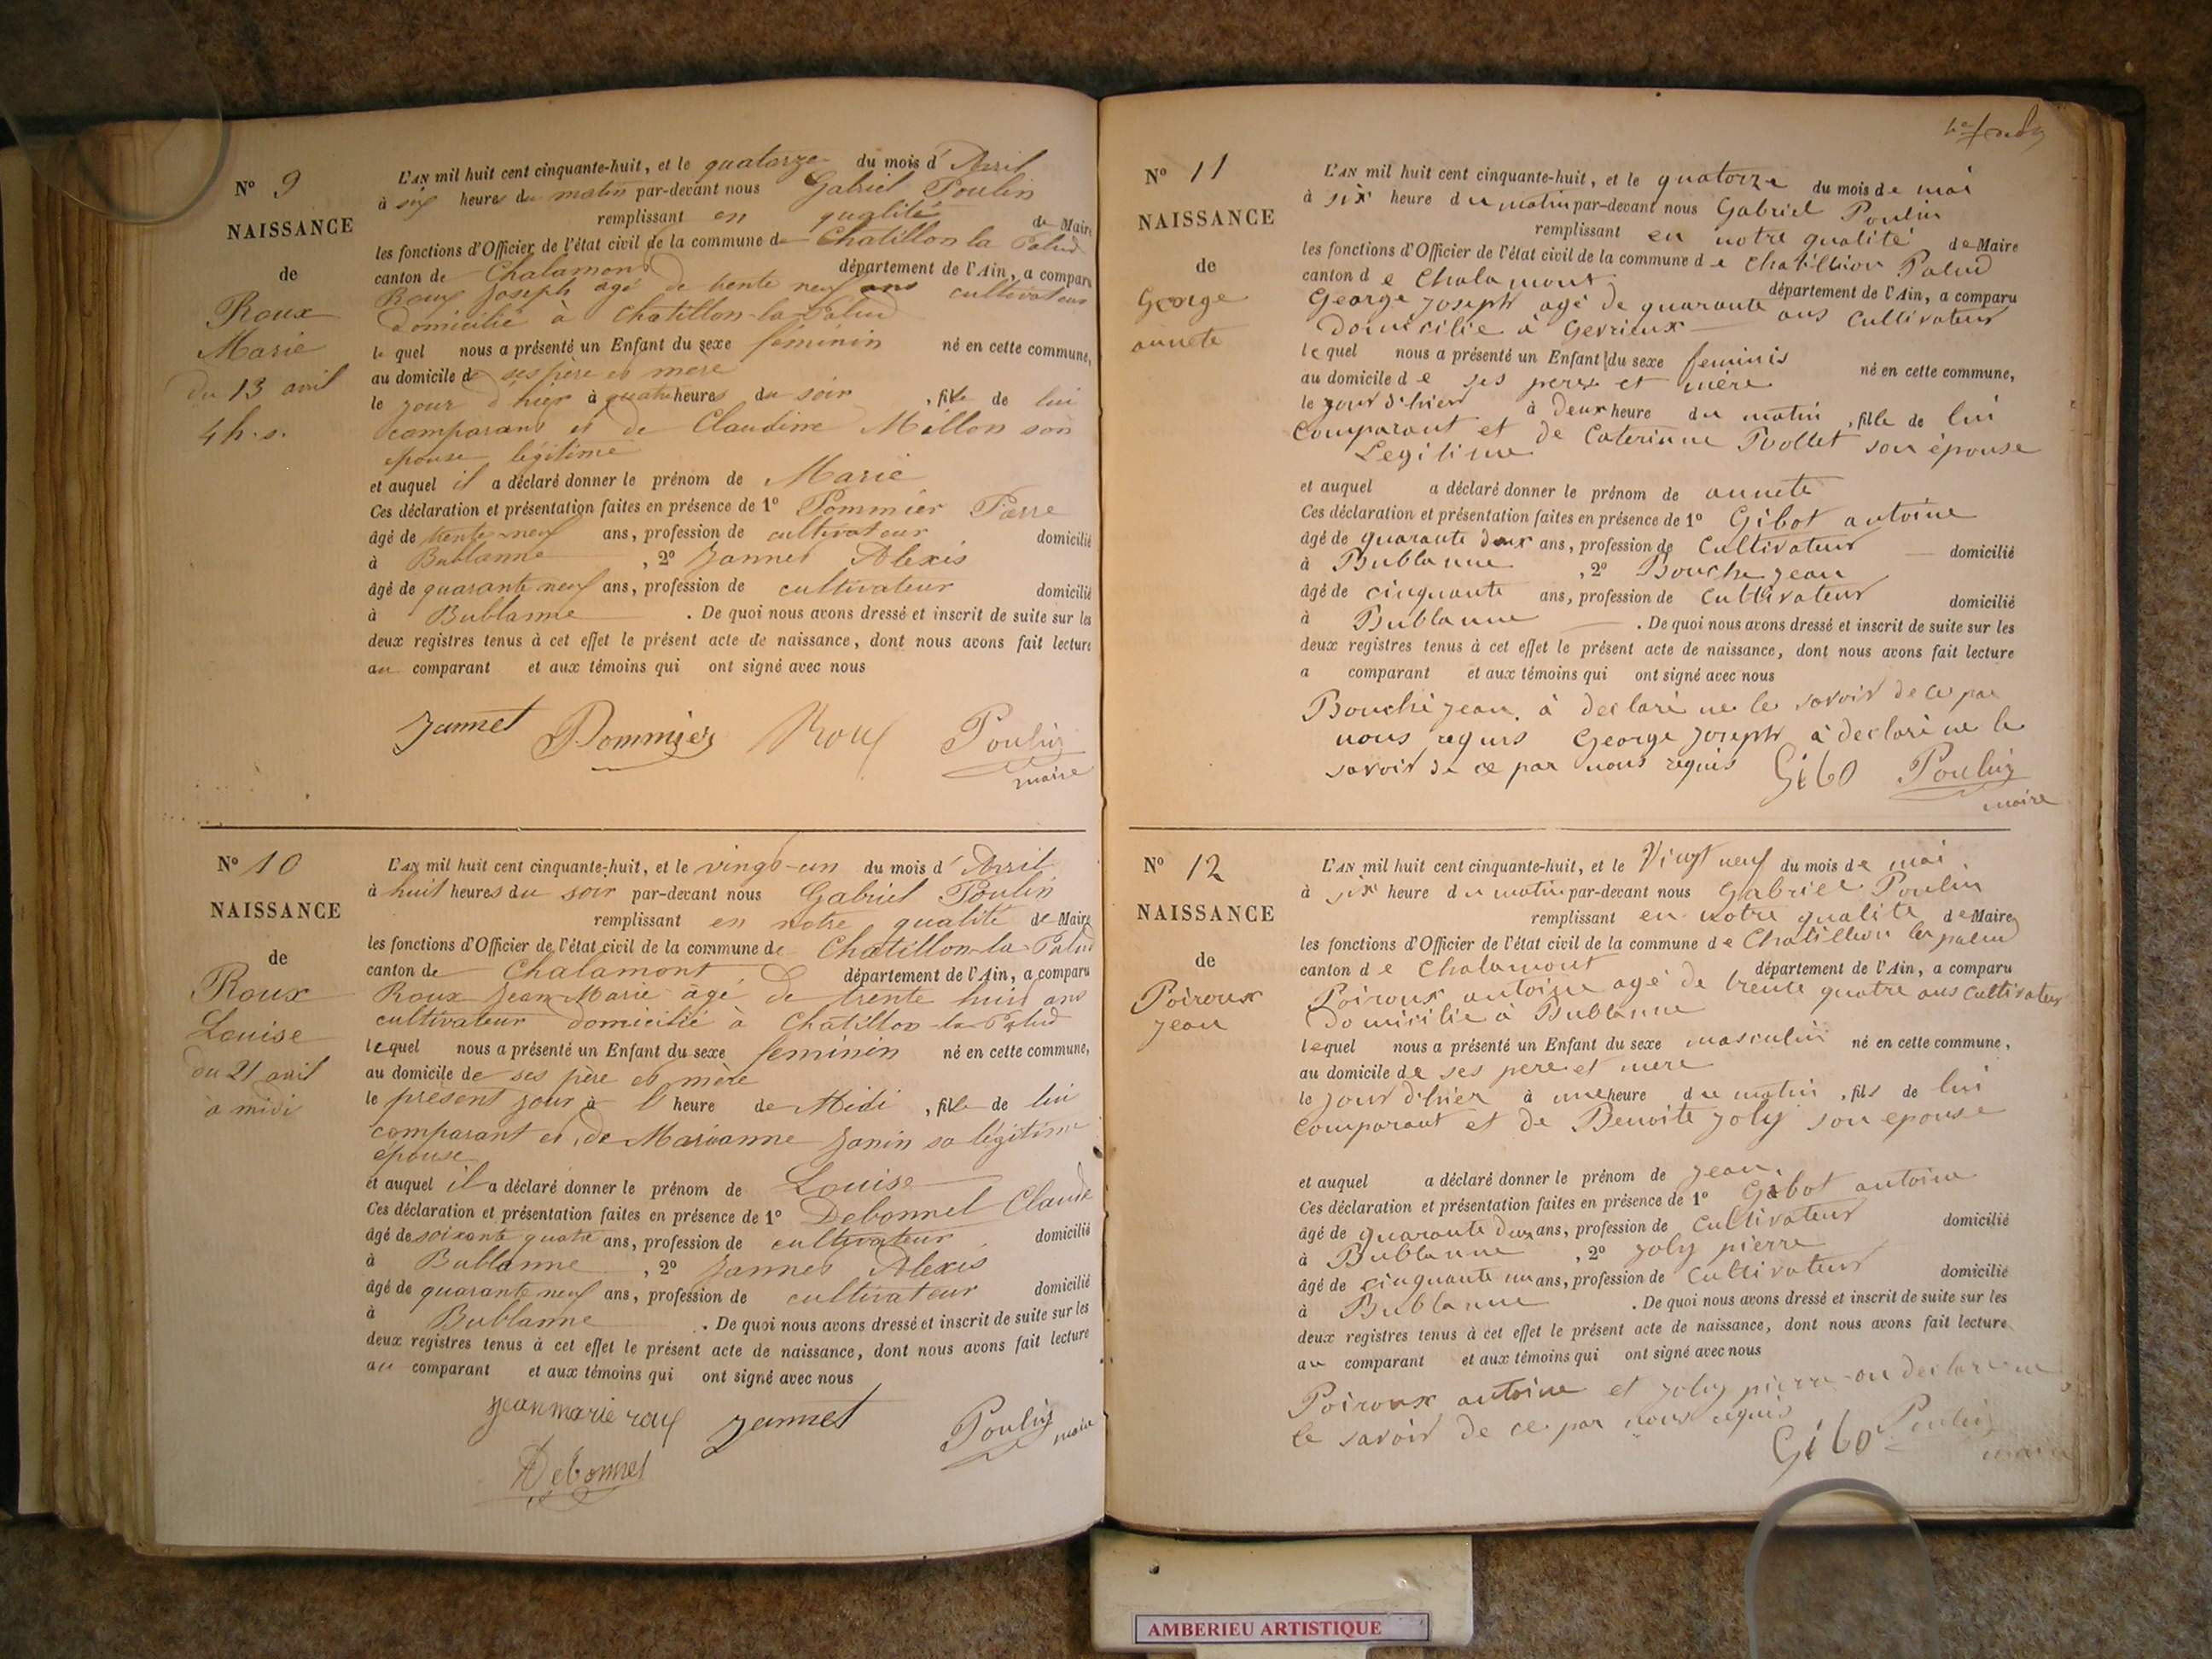 N° 9
NAISSANCE
de
Roux
Marie
du 13 avril
4 h. s.
L'AN mil huit cent cinquante-huit, et le quatorze du mois d'Avril
à six heures du matin par-devant nous Gabriel Poulin
remplissant en qualité de Maire
les fonctions d'Officier de l'état civil de la commune de Chatillon la Palud
canton de Chalamont département de l'Ain, a comparu
Roux Joseph agé de trente neuf ans cultivateur
domicilié à Chatillon-la-Palud
lequel nous a présenté un Enfant du sexe féminin né en cette commune,
au domicile de ses père et mere
le jour d'hier à quatre heures du soir, fille de lui
comparant et de Claudine Millon son
épouse légitime
et auquel il a déclaré donner le prénom de Marie
Ces déclaration et présentation faites en présence de 1° Pommier Pierre
âgé de trente-neuf ans, profession de cultivateur domicilié
à Bublanne, 2° Jannet Alexis
âgé de quarante neuf ans, profession de cultivateur domicilié
à Bublanne. De quoi nous avons dressé et inscrit de suite sur les
deux registres tenus à cet effet le présent acte de naissance, dont nous avons fait lecture
au comparant et aux témoins qui ont signé avec nous
Jannet Pommier Roux Poulin
maire
N° 10
NAISSANCE
de
Roux
Louise
du 21 avril
à midi
L'AN mil huit cent cinquante-huit, et le vingt-un du mois d'Avril
à huit heures du soir par-devant nous Gabriel Poulin
remplissant en notre qualité de Maire
les fonctions d'Officier de l'état civil de la commune de Chatillon-la-Palud
canton de Chalamont département de l'Ain, a comparu
Roux Jean Marie âgé de trente huit ans
cultivateur domicilié à Chatillon-la-Palud
lequel nous a présenté un Enfant du sexe féminin né en cette commune,
au domicile de ses père et mère
le présent jour à l'heure de Midi, fille de lui
comparant et de Marianne Janin sa légitime
épouse
et auquel il a déclaré donner le prénom de Louise
Ces déclaration et présentation faites en présence de 1° Debonnel Claude
âgé de soixante quatre ans, profession de cultivateur domicilié
à Bublanne, 2° Jannet Alexis
âgé de quarante neuf ans, profession de cultivateur domicilié
à Bublanne. De quoi nous avons dressé et inscrit de suite sur les
deux registres tenus à cet effet le présent acte de naissance, dont nous avons fait lecture
au comparant et aux témoins qui ont signé avec nous
jeanmarie roux Jannet Poulin maire
Debonnel
N° 11
NAISSANCE
de
George
annete
L'AN mil huit cent cinquante-huit, et le quatorze du mois de mai
à six heure du matin par-devant nous Gabriel Poulin
remplissant en notre qualité de Maire
les fonctions d'Officier de l'état civil de la commune de Chatillion Palud
canton de Chalamont département de l'Ain, a comparu
George Joseph agé de quarante ans Cultivateur
Domicilie à Gevrieux
lequel nous a présenté un Enfant du sexe feminis né en cette commune,
au domicile de ses pere et mère
le jour d'hier à deux heure du matin, fille de lui
Comparant et de Caterinne son épouse
Legitime
et auquel a déclaré donner le prénom de annete
Ces déclaration et présentation faites en présence de 1° Gibot antoine
âgé de quarante deux ans, profession de Cultivateur domicilié
à Bublanne, 2° Bouche jean
âgé de cinquante ans, profession de Cultivateur domicilié
à Bublanne. De quoi nous avons dressé et inscrit de suite sur les
deux registres tenus à cet effet le présent acte de naissance, dont nous avons fait lecture
a comparant et aux témoins qui ont signé avec nous
Bouche jean à declaré ne le savoir de ce par
nous requis George joseph à declaré ne le
savoir de ce par nous requis Gibo Poulin
maire
N° 12
NAISSANCE
de
Poiroux
jean
L'AN mil huit cent cinquante-huit, et le Vingt neuf du mois de mai
à six heure du matin par-devant nous Gabriel Poulin
remplissant en notre qualité de Maire
les fonctions d'Officier de l'état civil de la commune de Chatillion la palud
canton de Chalamont département de l'Ain, a comparu
Poiroux antoine agé de trente quatre ans Cultivateur
Domicilie à Bublanne
lequel nous a présenté un Enfant du sexe masculin né en cette commune,
au domicile de ses pere et mere
le jour d'hier à une heure du matin, fils de lui
Comparant et de Benoite joly son epouse
et auquel a déclaré donner le prénom de jean
Ces déclaration et présentation faites en présence de 1° Gibot antoine
âgé de quarante deux ans, profession de Cultivateur domicilié
à Bublanne, 2° joly pierre
âgé de cinquante un ans, profession de Cultivateur domicilié
à Bublanne. De quoi nous avons dressé et inscrit de suite sur les
deux registres tenus à cet effet le présent acte de naissance, dont nous avons fait lecture
au comparant et aux témoins qui ont signé avec nous
Poiroux antoine et joly pierre on declaré ne
le savoir de ce par nous requis
Gibo Poulin
maire
AMBERIEU ARTISTIQUE